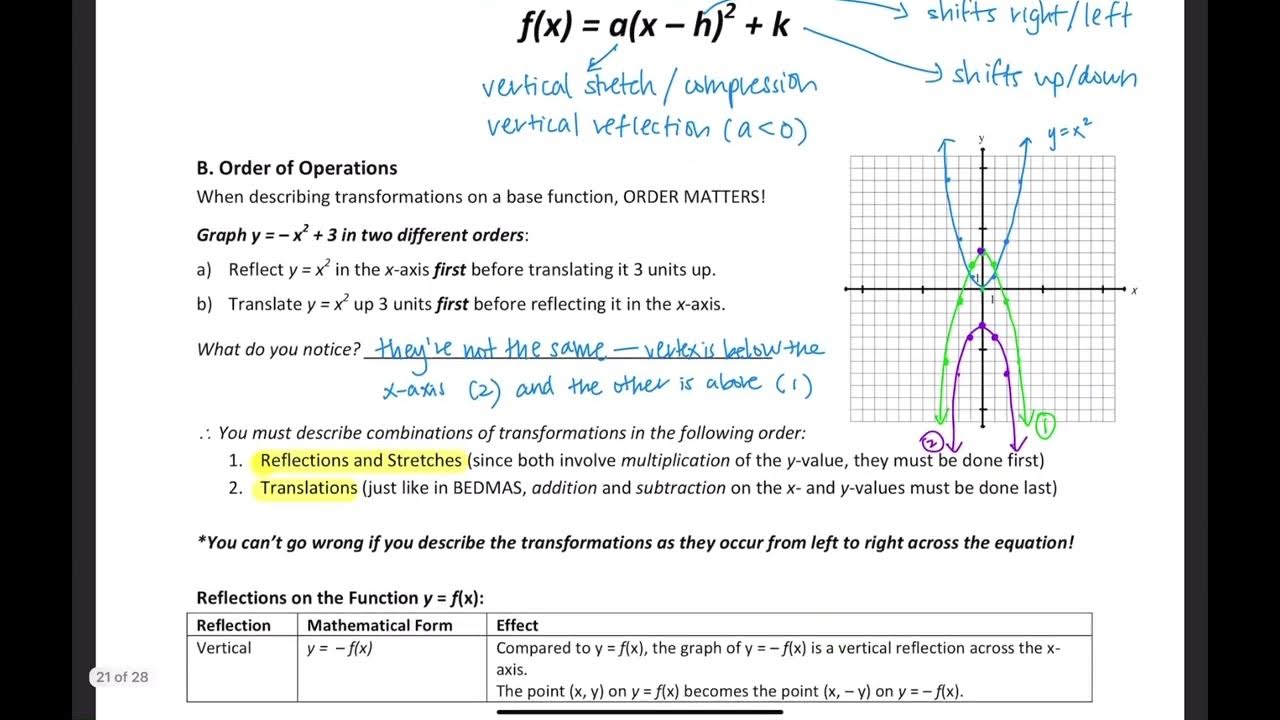 shifts right/left
f(x) = a(x – h)² + k
shifts up/down
vertical stretch / compression
vertical reflection (a<0)
y=x²
y
B. Order of Operations
When describing transformations on a base function, ORDER MATTERS!
Graph y = – x² + 3 in two different orders:
a) Reflect y = x² in the x-axis first before translating it 3 units up.
b) Translate y = x² up 3 units first before reflecting it in the x-axis.
1
x
1
What do you notice? they're not the same — vertex is below the
x-axis (2) and the other is above (1)
①
②
∴ You must describe combinations of transformations in the following order:
1. Reflections and Stretches (since both involve multiplication of the y-value, they must be done first)
2. Translations (just like in BEDMAS, addition and subtraction on the x- and y-values must be done last)
*You can't go wrong if you describe the transformations as they occur from left to right across the equation!
Reflections on the Function y = f(x):
Reflection Mathematical Form Effect
Vertical y = – f(x) Compared to y = f(x), the graph of y = – f(x) is a vertical reflection across the x-
axis.
The point (x, y) on y = f(x) becomes the point (x, – y) on y = – f(x).
21 of 28